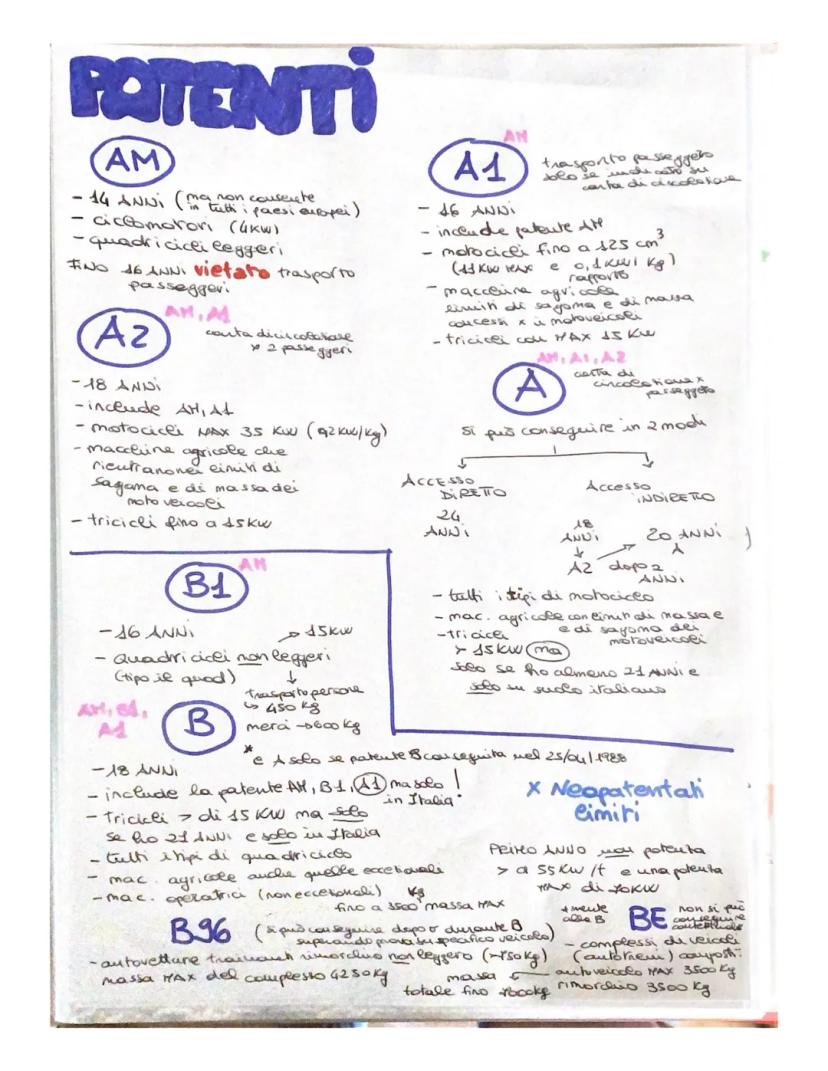 POTENTI
AM
- 14 ANNI (ma non consente
in tutti i paesi europei)
- ciclomotori (4KW)
- quadricicli leggeri
FINO 16 ANNI vietato trasporto
passeggeri
AM
A1
trasporto passeggero
solo se indicato su
carta di circolazione
- 16 ANNi
- include patente AM
- motocicli fino a 125 cm³
(11 KW MAX e 0,1 KW/Kg)
rapporto
- macchine agricole
limiti di sagoma e di massa
concessi x i motoveicoli
- tricicli con MAX 15 KW
AM, A1
A2
carta di circolazione
x 2 passeggeri
- 18 ANNi
- include AM, A1
- motocicli MAX 35 KW (0,2KW/Kg)
- macchine agricole che
rientrano nei limiti di
sagama e di massa dei
motoveicoli
- tricicli fino a 15KW
AM, A1, A2
A
carta di
circolazione x
passeggero
Si può conseguire in 2 modi
ACCESSO
DIRETTO
24
ANNi
ACCESSO
iNDIRETTO
18
ANNi
A2
dopo 2
ANNi
20 ANNi
A
- tutti i tipi di motociclo
- mac. agricole con limiti di massa e
e di sagoma dei
motoveicoli
- tricicli
> 15KW ma
solo se ho almeno 21 ANNi e
solo su suolo italiano
AM
B1
- 16 ANNi
→ 15KW
- quadricicli non leggeri
(tipo il quad)
trasporto persone
↳ 450 Kg
merci → 600 Kg
AM, B1,
A1
B
* e A solo se patente B conseguita nel 25/04/1988
- 18 ANNi
- include la patente AM, B1, A1 ma solo
in Italia!
- Tricicli > di 15 KW ma solo
se ho 21 ANNi e solo in Italia
- tutti i tipi di quadriciclo
- mac. agricole anche quelle eccezionali
- mac. operatrici (non eccezionali)
Kg
fino a 3500 massa MAX
x Neopatentati
limiti
PRIMO ANNO non potenza
> a 55 KW/t e una potenza
MAX di 70KW
B96
(si può conseguire dopo o durante B
superando prova su specifico veicolo)
- autovetture trainanti rimorchio non leggero (>750kg)
massa MAX del complesso 4250kg
alla B
BE
non si può
conseguire
- complessi di veicoli
(autotreni) composti:
autoveicolo MAX 3500 Kg
rimorchio 3500 Kg
massa
totale fino 7000kg